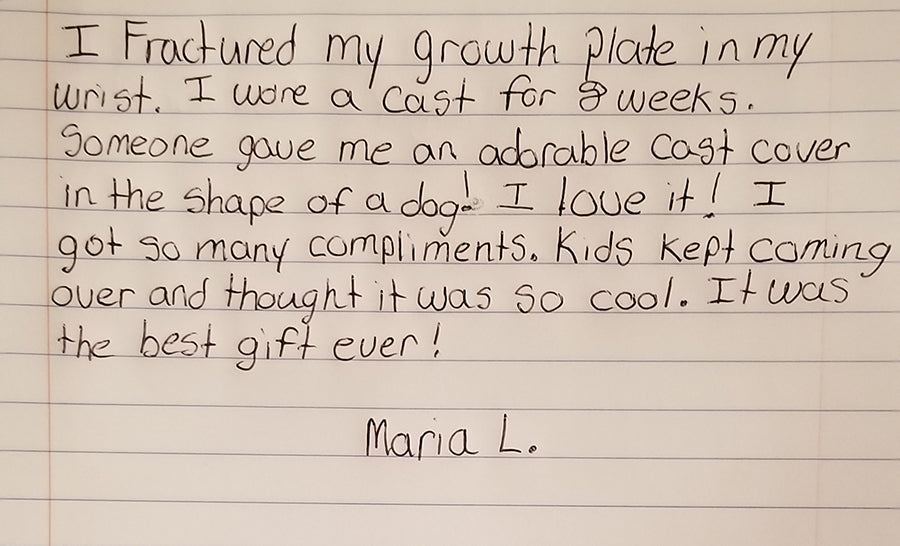 I Fractured my growth plate in my
wrist. I wore a cast for 8 weeks.
Someone gave me an adorable cast cover
in the shape of a dog! I love it! I
got so many compliments. Kids kept coming
over and thought it was so cool. It was
the best gift ever!
Maria L.